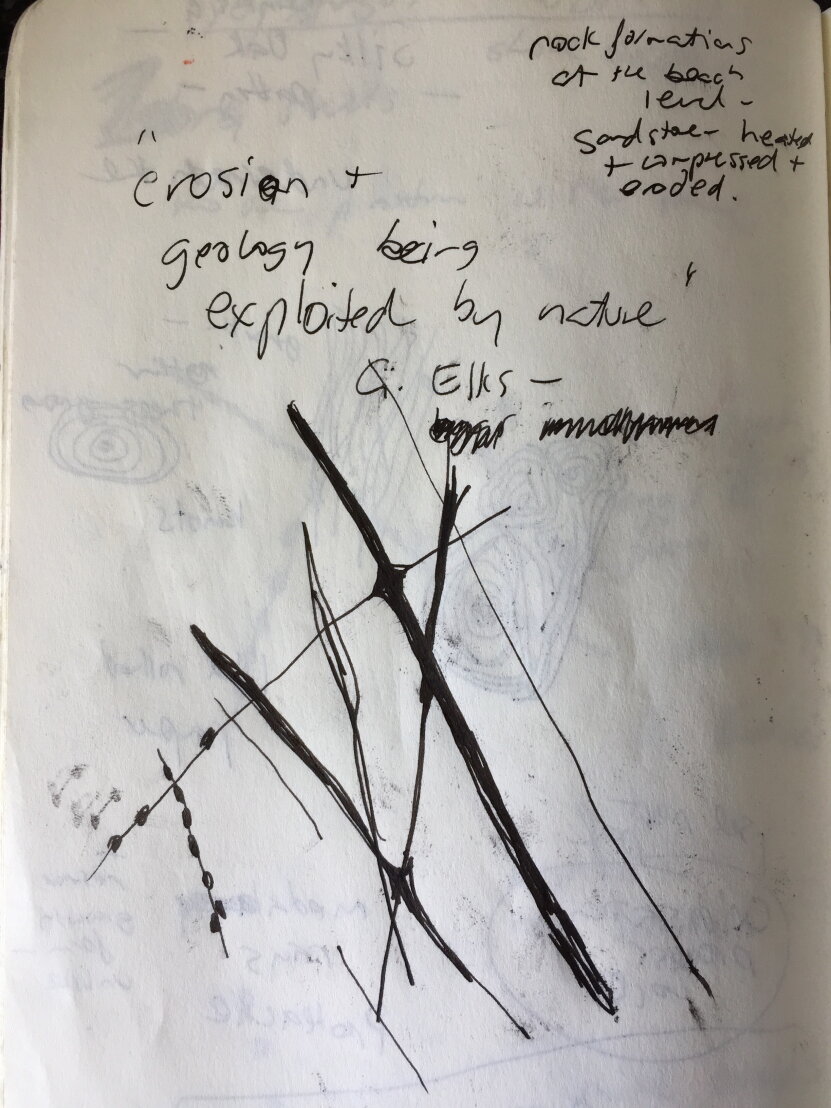 rock formations
at the beach
level -
Sandstone - heated
+ compressed +
eroded.
"erosion +
geology being
exploited by nature"
G. Elks -